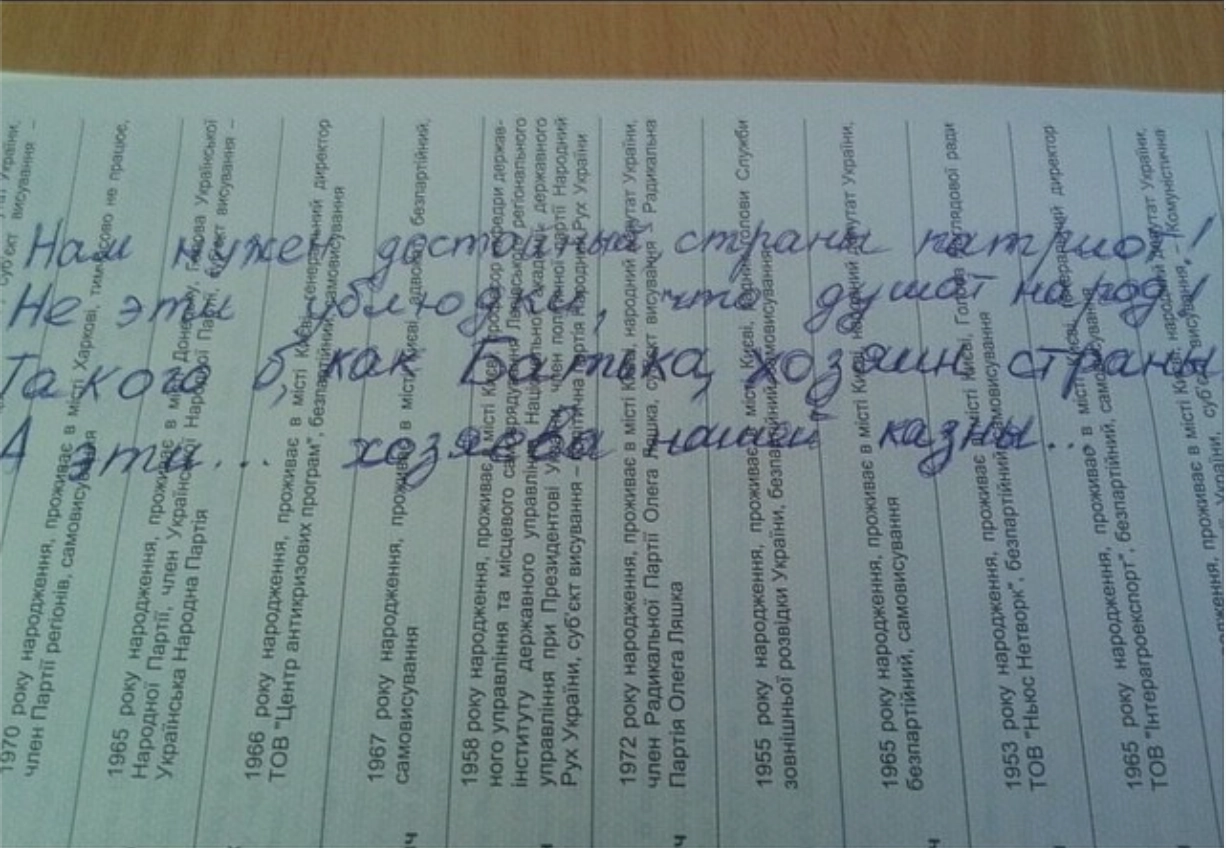 Нам нужен достойный страны патриот!
Не эти ублюдки, что душат народ!
Такого б, как Батька, хозяин страны
А эти... хозяева нашей казны...
1970 року народження, проживає в місті Харкові, тимчасово не працює,
член Партії регіонів, самовисування
1965 року народження, проживає в місті Донецьку, Голова Української
Народної Партії, член Української Народної Партії, суб'єкт висування –
Українська Народна Партія
1966 року народження, проживає в місті Києві, генеральний директор
ТОВ "Центр антикризових програм", безпартійний, самовисування
1967 року народження, проживає в місті Києві, адвокат, безпартійний,
самовисування
1958 року народження, проживає в місті Києві, професор кафедри держав-
ного управління та місцевого самоврядування Львівського регіонального
інституту державного управління Національної академії державного
управління при Президентові України, член політичної партії Народний
Рух України, суб'єкт висування – політична партія Народний Рух України
1972 року народження, проживає в місті Києві, народний депутат України,
член Радикальної Партії Олега Ляшка, суб'єкт висування – Радикальна
Партія Олега Ляшка
1955 року народження, проживає в місті Києві, Голови Служби
зовнішньої розвідки України, безпартійний, самовисування
1965 року народження, проживає в місті Києві, народний депутат України,
безпартійний, самовисування
1953 року народження, проживає в місті Києві, Голова наглядової ради
ТОВ "Ньюс Нетворк", безпартійний, самовисування
1965 року народження, проживає в місті Києві, генеральний директор
ТОВ "Інтерагроекспорт", безпартійний, самовисування
народження, проживає в місті Києві, народний депутат України,
суб'єкт висування – Комуністична